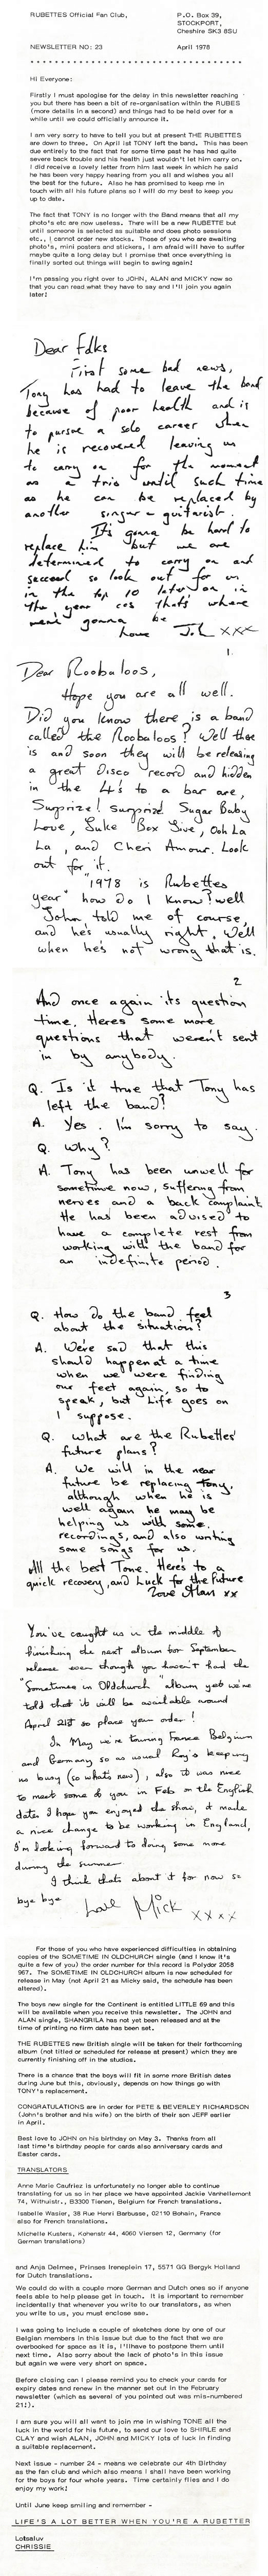 RUBETTES Official Fan Club,
P.O. Box 39,
STOCKPORT,
Cheshire SK3 8SU
NEWSLETTER NO: 23
April 1978
Hi Everyone:
Firstly I must apologise for the delay in this newsletter reaching
you but there has been a bit of re-organisation within the RUBES
(more details in a second) and things had to be held over for a
while until we could officially announce it.
I am very sorry to have to tell you but at present THE RUBETTES
are down to three. On April 1st TONY left the band. This has been
due entirely to the fact that for some time past he has had quite
severe back trouble and his health just wouldn't let him carry on.
I did receive a lovely letter from him last week in which he said
he has been very happy hearing from you all and wishes you all
the best for the future. Also he has promised to keep me in
touch with all his future plans so I will do my best to keep you
up to date.
The fact that TONY is no longer with the Band means that all my
photo's etc are now useless. There will be a new RUBETTE but
until someone is selected as suitable and does photo sessions
etc., I cannot order new stocks. Those of you who are awaiting
photo's, mini posters and stickers, I am afraid will have to suffer
maybe quite a long delay but I promise that once everything is
finally sorted out things will begin to swing again!
I'm passing you right over to JOHN, ALAN and MICKY now so
that you can read what they have to say and I'll join you again
later!
Dear folks
First some bad news,
Tony has had to leave the band
because of poor health and is
to pursue a solo career when
he is recovered leaving us
to carry on for the moment
as a trio until such time
as he can be replaced by
another singer - guitarist.
It's gonna be hard to
replace him but we are
determined to carry on and
succeed so look out for us
in the top 10 later on in
the year cos that's where
we're gonna be
Love John xxx
1.
Dear Roobaloos,
Hope you are all well.
Did you know there is a band
called the Roobaloos? Well there
is and soon they will be releasing
a great Disco record and hidden
in the 4's to a bar are,
Surprize! Surprize! Sugar Baby
Love, Juke Box Jive, Ooh La
La, and Cheri Amour. Look
out for it.
"1978 is Rubettes
year" how do I know? well
John told me of course,
and he's usually right. Well
when he's not wrong that is.
2
And once again its question
time. Heres some more
questions that weren't sent
in by anybody.
Q. Is it true that Tony has
left the band?
A. Yes. I'm sorry to say.
Q. Why?
A. Tony has been unwell for
sometime now, suffering from
nerves and a back complaint.
He has been advised to
have a complete rest from
working with the band for
an indefinite period.
3
Q. How do the band feel
about the situation?
A. We're sad that this
should happen at a time
when we were finding
our feet again, so to
speak, but Life goes on
I suppose.
Q. What are the Rubettes'
future plans?
A. We will in the near
future be replacing Tony,
although when he is
well again he may be
helping us with some
recordings, and also writing
some songs for us.
All the best Tone. Here's to a
quick recovery, and Luck for the future
Love Alan xx
You've caught us in the middle of
finishing the next album for September
release even though you haven't had the
"Sometimes in Oldchurch" album yet we're
told that it will be available around
April 21st so place your order!
In May we're touring France Belgium
and Germany so as usual Roy's keeping
us busy (so whats new), also it was nice
to meet some of you in Feb on the English
dates I hope you enjoyed the show, it made
a nice change to be working in England,
I'm looking forward to doing some more
during the summer
I think thats about it for now so
bye bye
Love Mick xxxx
For those of you who have experienced difficulties in obtaining
copies of the SOMETIME IN OLDCHURCH single (and I know it's
quite a few of you) the order number for this record is Polydor 2058
967. The SOMETIME IN OLDCHURCH album is now scheduled for
release in May (not April 21 as Micky said, the schedule has been
altered).
The boys new single for the Continent is entitled LITTLE 69 and this
will be available when you receive this newsletter. The JOHN and
ALAN single, SHANGRILA has not yet been released and at the
time of printing no firm date has been set.
THE RUBETTES new British single will be taken for their forthcoming
album (not titled or scheduled for release at present) which they are
currently finishing off in the studios.
There is a chance that the boys will fit in some more British dates
during June but this, obviously, depends on how things go with
TONY's replacement.
CONGRATULATIONS are in order for PETE & BEVERLEY RICHARDSON
(John's brother and his wife) on the birth of their son JEFF earlier
in April.
Best love to JOHN on his birthday on May 3. Thanks from all
last time's birthday people for cards also anniversary cards and
Easter cards.
TRANSLATORS
Anne Marie Caufriez is unfortunately no longer able to continue
translating for us so in her place we have appointed Jackie Vanhellemont
74, Withuistr., B3300 Tienen, Belgium for French translations.
Isabelle Wasier, 38 Rue Henri Barbusse, 02110 Bohain, France
also for French translations.
Michelle Kusters, Kohenstr 44, 4060 Viersen 12, Germany (for
German translations)
and Anja Delmee, Prinses Ireneplein 17, 5571 GG Bergyk Holland
for Dutch translations.
We could do with a couple more German and Dutch ones so if anyone
feels able to help please get in touch. It is important to remember
incidentally that whenever you write to our translators, as when
you write to us, you must enclose sae.
I was going to include a couple of sketches done by one of our
Belgian members in this issue but due to the fact that we are
overbooked for space as it is, I'll have to postpone them until
next time. Also sorry about the lack of photo's in this issue
but again we were very short on space.
Before closing can I please remind you to check your cards for
expiry dates and renew in the manner set out in the February
newsletter (which as several of you pointed out was mis-numbered
21!).
I am sure you will all want to join me in wishing TONE all the
luck in the world for his future, to send our love to SHIRLE and
CLAY and wish ALAN, JOHN and MICKY lots of luck in finding
a suitable replacement.
Next issue - number 24 - means we celebrate our 4th Birthday
as the fan club and which also means I shall have been working
for the boys for four whole years. Time certainly flies and I do
enjoy my work!
Until June keep smiling and remember -
LIFE'S A LOT BETTER WHEN YOU'RE A RUBETTER
Lotsaluv
CHRISSIE